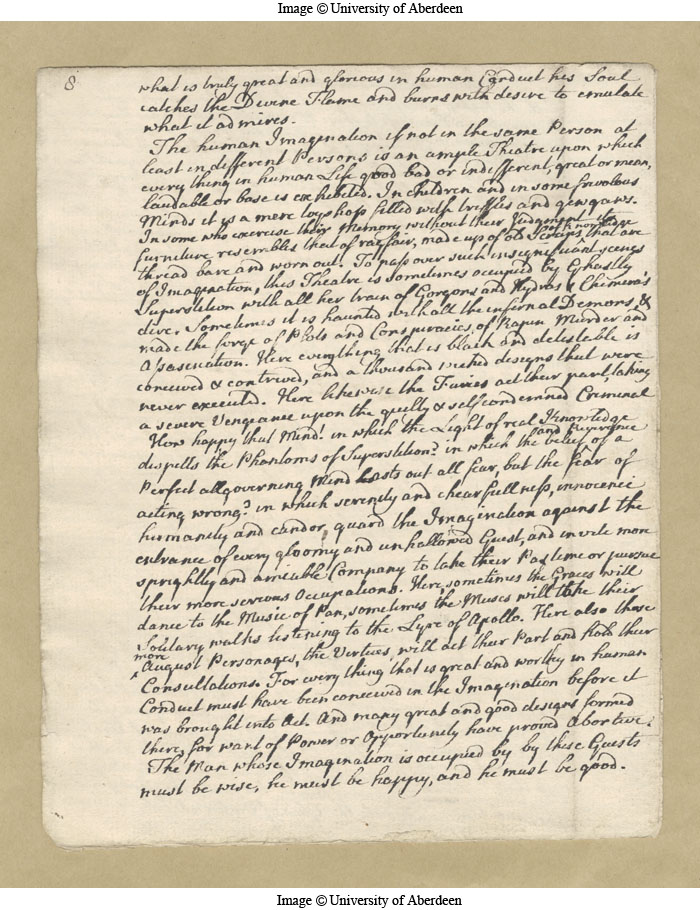 Image © University of Aberdeen
8
what is truly great and glorious in human Conduct his Soul
catches the Divine Flame and burns with desire to emulate
what it admires.
The human Imagination if not in the same Person at
least in different Persons is an ample Theatre upon which
every thing in human Life good bad or indifferent, great or mean,
laudable or base is exhibited. In children and in some frivolous
Minds it is a mere toyshop filled with triffles and gewgaws.
In some who exercise their Memory without their Judgment its
furniture resembles that of ragfair, made up of old Scraps of knowledge that are
thread bare and worn out. To pass over such insignificant scenes
of Imagination, this Theatre is sometimes occupied by Ghastly
Superstition with all her train of Gorgons and Hydras & Chimera's
dire. Sometimes it is haunted with all the infernal Demons, &
made the forge of Plots and Conspiracies, of Rapin Murder and
Assasination. Here everything that is black and detestable is
conceived & contrived, and a thousand wicked designs that were
never executed. Here likewise the Furies act their part, taking
a severe Vengeance upon the guilty & selfcondemned Criminal
How happy that Mind! in which the Light of real Knowledge
dispells the Phantoms of Superstition? in which the belief and Reverence of a
Perfect allgoverning Mind casts out all fear, but the fear of
acting wrong? in which serenity and chearfullness, innocence
humanity and candor, guard the Imagination against the
entrance of every gloomy and unhallowed Guest, and invite more
sprightly and amicable Company to take their Pastime or pursue
their more serious Occupations. Here, sometimes the Graces will
dance to the Music of Pan, sometimes the Muses will take their
Solitary walks listening to the Lyre of Apollo. Here also those
more August Personages, the Virtues, will act their Part and hold their
Consultations. For every thing that is great and worthy in human
Conduct must have been conceived in the Imagination before it
was brought into Act. And many great and good designs formed
there, for want of Power or Opportunity have proved Abortive.
The Man whose Imagination is occupied by by these Guests
must be wise, he must be happy, and he must be good.
Image © University of Aberdeen